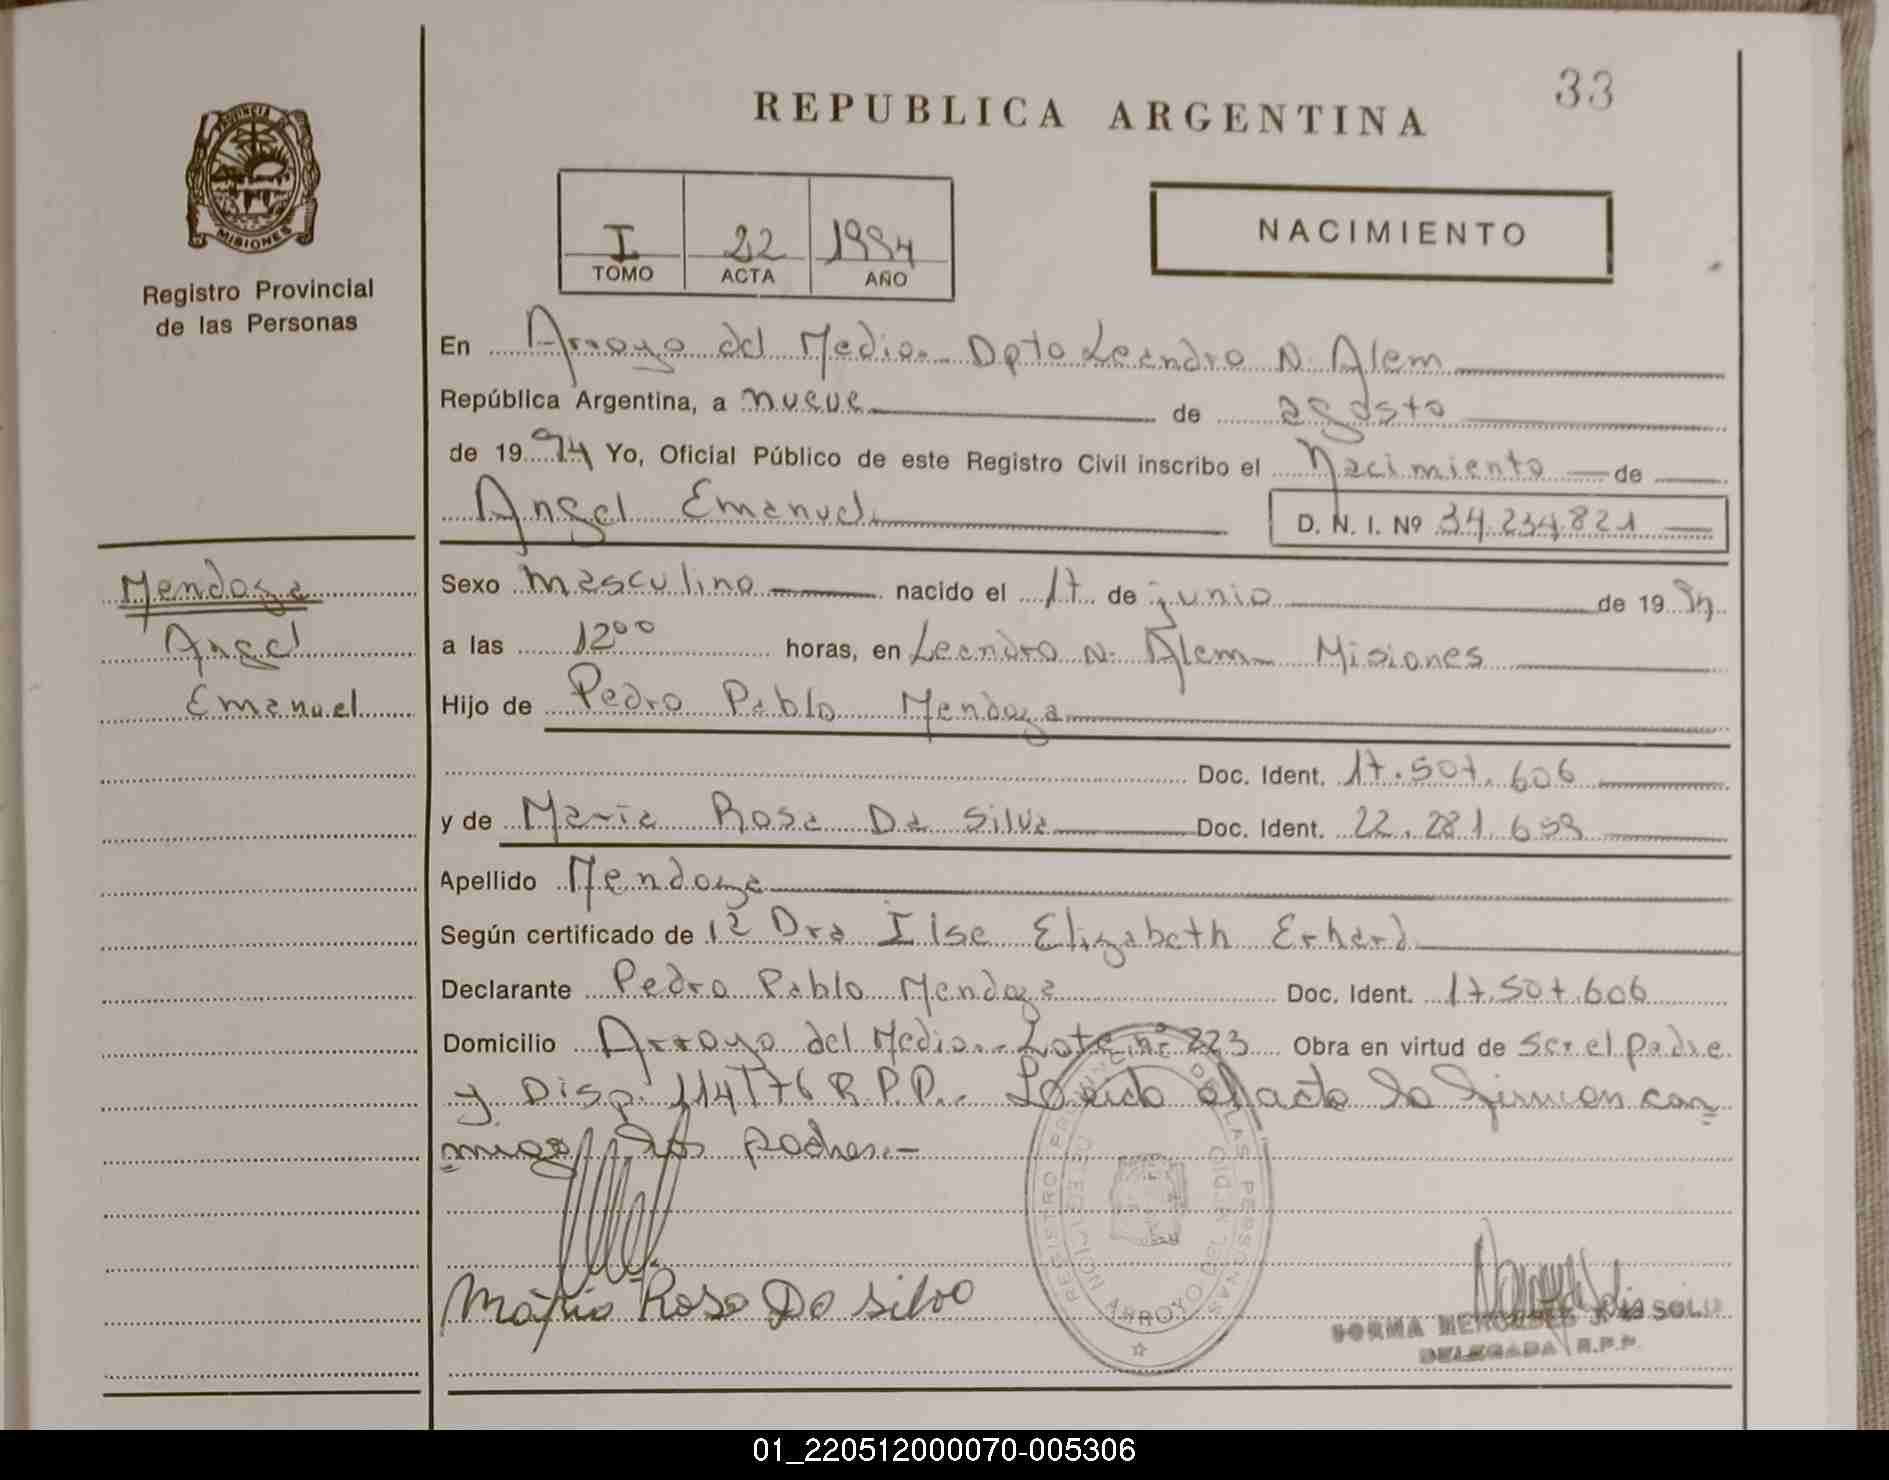 33
REPUBLICA ARGENTINA
PROVINCIA DE
MISIONES
Registro Provincial
de las Personas
I 22 1994
TOMO ACTA AÑO
NACIMIENTO
En Arroyo del Medio. Dpto Leandro N. Alem
República Argentina, a nueve de agosto
de 1994 Yo, Oficial Público de este Registro Civil inscribo el Nacimiento de
Angel Emanuel D. N. I. Nº 34.234.821
Mendoza
Angel
Emanuel
Sexo masculino nacido el 17 de junio de 19
a las 12⁰⁰ horas, en Leandro N. Alem Misiones
Hijo de Pedro Pablo Mendoza
Doc. Ident. 17.507.606
y de Maria Rosa Da Silva Doc. Ident. 22.281.659
Apellido Mendoza
Según certificado de la Dra Ilse Elizabeth Erhard
Declarante Pedro Pablo Mendoza Doc. Ident. 17.507.606
Domicilio Arroyo del Medio.- Lote nº 223 Obra en virtud de ser el padre
y Disp. 114/76 R.P.P.- Leída el acta la firman con=
=migo los padres.-
Maria Rosa Da Silva
REGISTRO PROVINCIAL DE LAS PERSONAS
ARROYO DEL MEDIO
NORMA MERCEDES SOLIS
DELEGADA R.P.P.
01_220512000070-005306